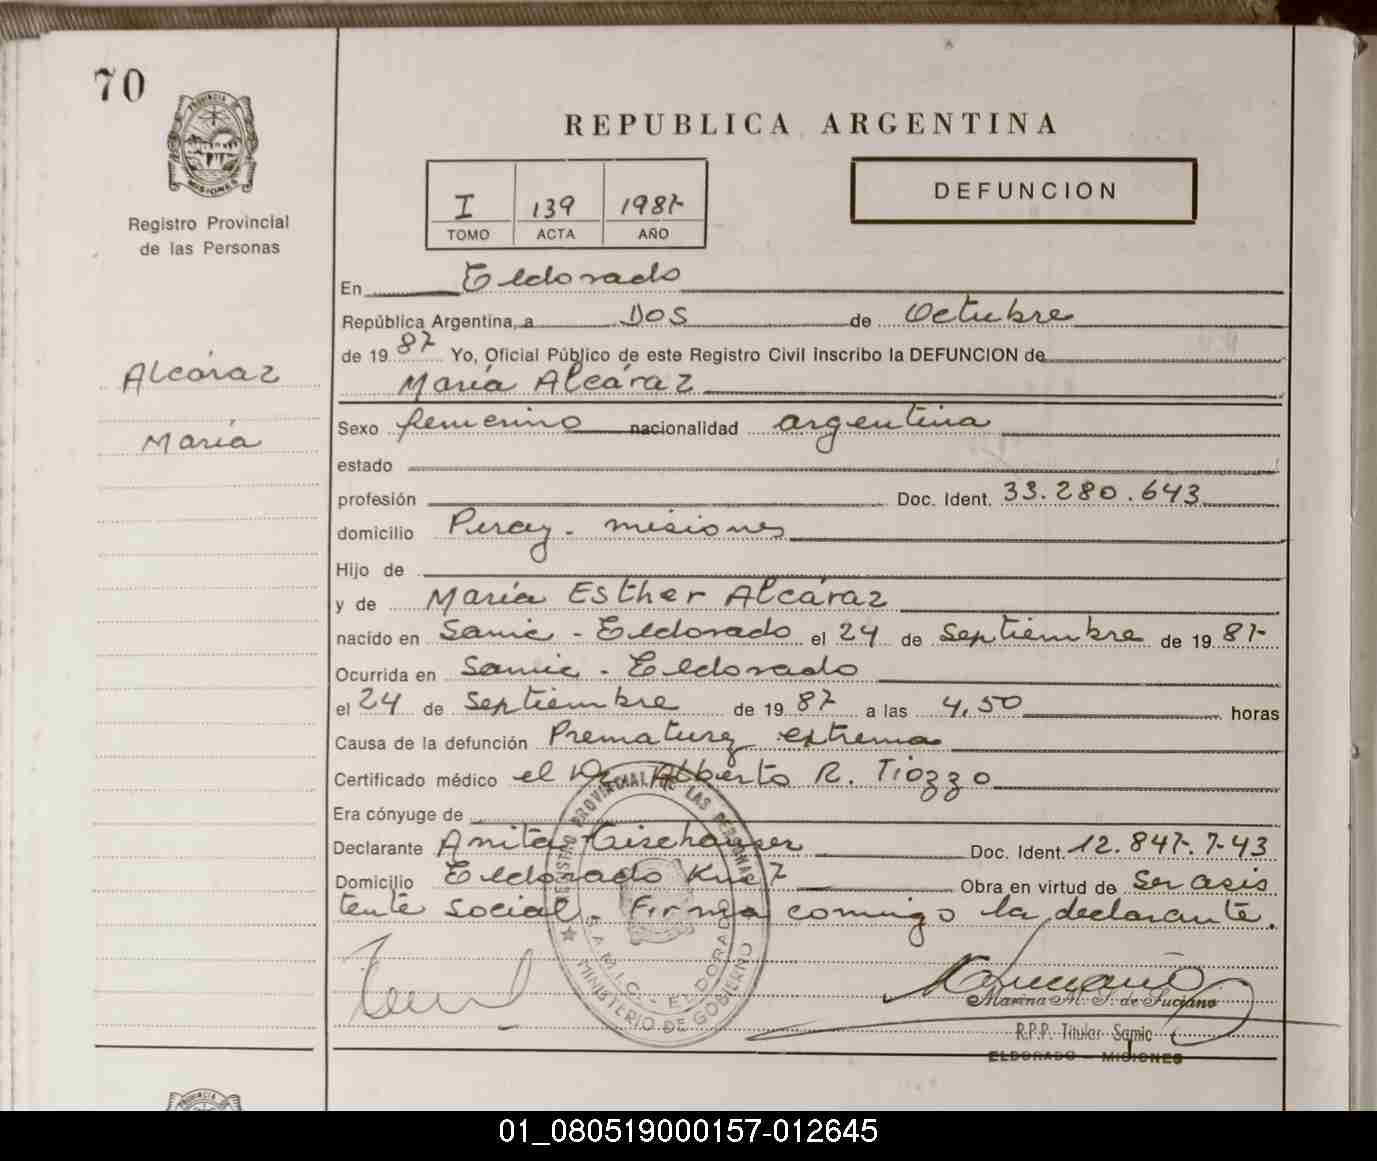 70
PROVINCIA DE
MISIONES
Registro Provincial
de las Personas
Alcáraz
María
REPUBLICA ARGENTINA
DEFUNCION
I 139 1987
TOMO ACTA AÑO
En Eldorado
República Argentina, a Dos de Octubre
de 19 87 Yo, Oficial Público de este Registro Civil inscribo la DEFUNCION de
María Alcáraz
Sexo femenino nacionalidad argentina
estado
profesión Doc. Ident. 33.280.643
domicilio Piray - misiones
Hijo de
y de María Esther Alcáraz
nacido en Samic - Eldorado el 24 de Septiembre de 19 87
Ocurrida en Samic - Eldorado
el 24 de Septiembre de 19 87 a las 4,50 horas
Causa de la defunción Prematurez extrema
Certificado médico el Dr. Alberto R. Tiozzo
Era cónyuge de
Declarante Anita Doc. Ident. 12.847.743
Domicilio Eldorado Km 7 Obra en virtud de ser asis
tente social. Firma comigo la declarante.
REGISTRO PROVINCIAL DE LAS PERSONAS
S.A.M.I.C. - ELDORADO
MINISTERIO DE GOBIERNO
Marina M. S. de Luciano
R.P.P. Titular Samic
ELDORADO - MISIONES
PROVINCIA DE
01_080519000157-012645